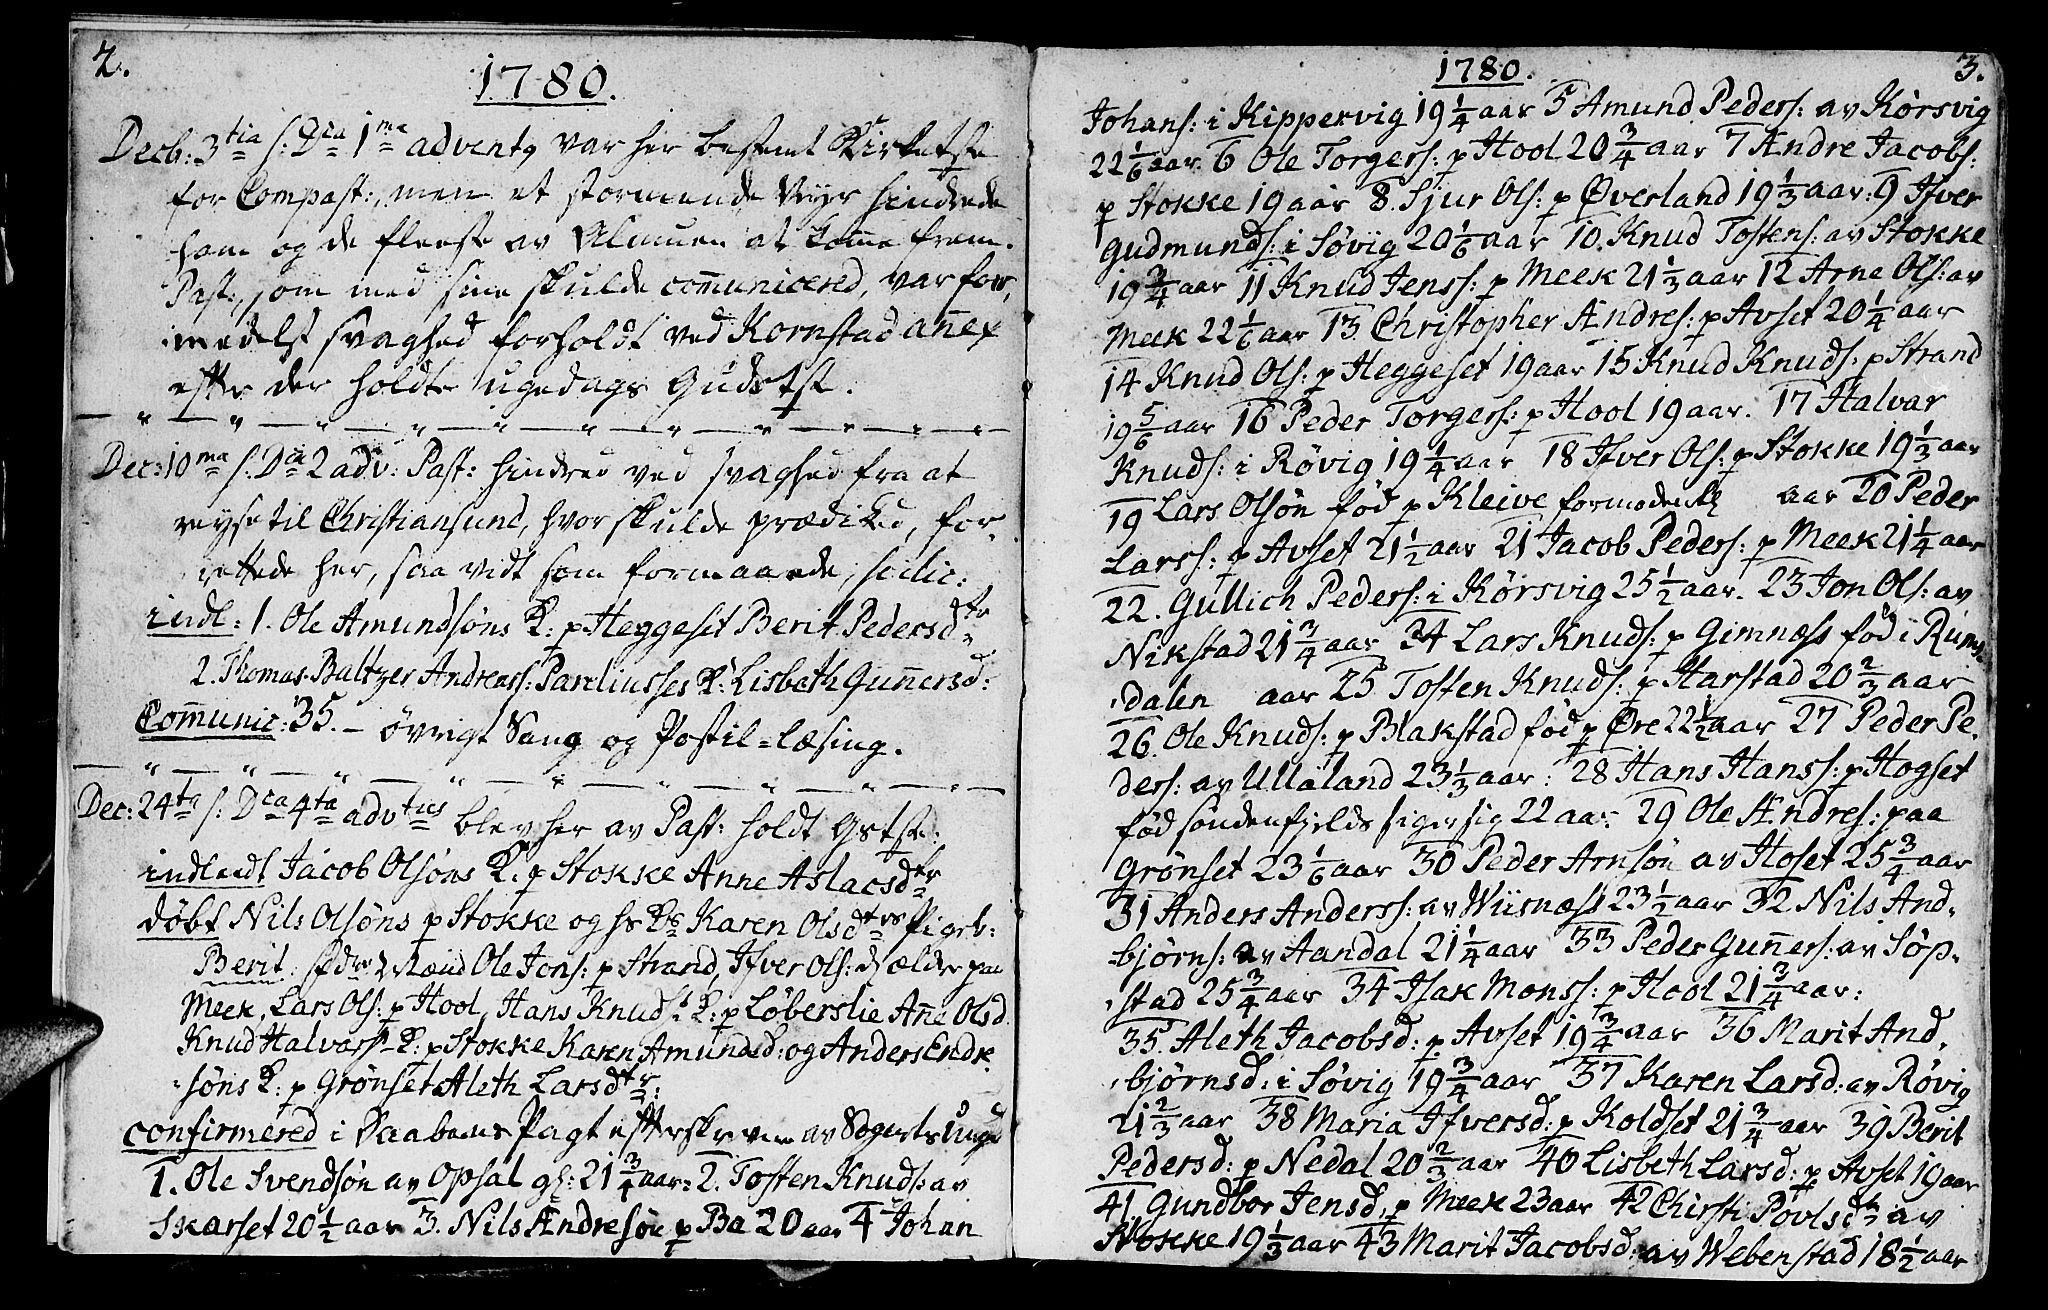 2.
1780.
Decb: 3tia s: Dca 1ma advent9 var her bestemt Kirketste
for Compast:, men et stormende Veyr hindrede
ham og de fleeste av Almuen at komme frem.
Past:, som med sine skulde communicered, var for,
imedelst svaghed forholdt ved Kornstad annex
efter der holdte ugedags Gudstst.
Dec: 10ma s: Dca 2 adv: Past: hindred ved svaghed fra at
reyse til Christiansund, hvor skulde prædiked, for-
rettede her, saa vidt som formaaede, scilic:
indl: 1. Ole Amundsöns K: p Heggeset Berit Pedersdtr
2. Thomas Baltzer Andreass: Pareliusses K: Lisbeth Gunnersd:
Communic: 35. - övrigt Sang og Postil-læsing.
Dec: 24ta s: Dca 4ta advtus blev her av Past: holdt Gstste:
indleedt Jacob Olsöns K. p Stokke Anne Aslacsdtr
döbt Nils Olsöns p Stokke og hs Ks Karen Olsdtrs Pigeb:
Berit: fdre Mænd Ole Jons: p Strand, Ifver Ols: d ældre paa
Meek, Lars Ols: p Hool, Hans Knuds: K: p Löberslie Anne Olsd.
Knud Halvarss K: p Stokke Karen Amundsd: og Anders Endre-
söns K: p Grönset Aleth Larsdtr:
confirmered i Daabens Pagt efterskrevne av Sognets Unge
1. Ole Svendsön av Opsal gl: 21 3/4 aar: 2. Tosten Knuds: av
Skarset 20 1/2 aar 3. Nils Andresön p Ba 20 aar 4 Johan
1780. 3.
Johans: i Kippervig 19 1/4 aar 5 Amund Peders: av Körsvig
22 1/6 aar 6 Ole Torgers: p Hool 20 3/4 aar 7 Andre Jacobs:
p Stokke 19 aar 8. Sjur Ols: p Øverland 19 1/3 aar: 9 Ifver
Gudmunds: i Sövig 20 1/6 aar 10. Knud Tostens: av Stokke
19 3/4 aar 11 Knud Jenss: p Meek 21 1/3 aar 12 Arne Ols: av
Meek 22 1/6 aar 13. Christopher Andres: p Avset 20 1/4 aar
14 Knud Ols: p Heggeset 19 aar 15 Knud Knuds: p Strand
19 5/6 aar 16 Peder Torgers: p Hool 19 aar. 17 Halvar
Knuds: i Rövig 19 1/4 aar 18 Ifver Ols: p Stokke 19 1/3 aar
19 Lars Olsön föd p Kleive formodentl aar 20 Peder
Larss: p Avset 21 1/2 aar 21 Jacob Peders: p Meek 21 1/4 aar
22. Gullich Peders: i Körsvig 25 1/2 aar. 23 Jon Ols: av
Nikstad 21 3/4 aar 24 Lars Knuds: p Gimnæss föd i Rums-
dalen aar 25 Tosten Knuds: p Harstad 20 2/3 aar
26. Ole Knuds: p Blakstad föd p Øre 22 1/2 aar 27 Peder Pe-
ders: av Ullaland 23 1/3 aar: 28 Hans Hanss: p Hogset
föd söndenfjelds siger sig 22 aar: 29 Ole Andres: paa
Grönset 23 1/6 aar 30 Peder Arnsön av Hoset 25 3/4 aar
31 Anders Anderss: av Wiisnæss 23 1/2 aar 32 Nils And-
björns: av Aandal 21 1/4 aar 33 Peder Gunners: av Söp-
stad 25 3/4 aar 34 Isak Monss: p Hool 21 3/4 aar:
35. Aleth Jacobsd: p Avset 19 3/4 aar 36 Marit And-
björnsd: i Sövig 19 3/4 aar 37 Karen Larsd: av Rövig
21 2/3 aar 38 Maria Ifversd: p Koldset 21 3/4 aar 39 Berit
Pedersd: p Nedal 20 2/3 aar 40 Lisbeth Larsd: p Avset 19 aar
41, Gundbor Jensd, p Meek 23 aar 42 Chirsti Povlsdtr av
Stokke 19 1/3 aar 43 Marit Jacobsd: av Webenstad 18 1/2 aar